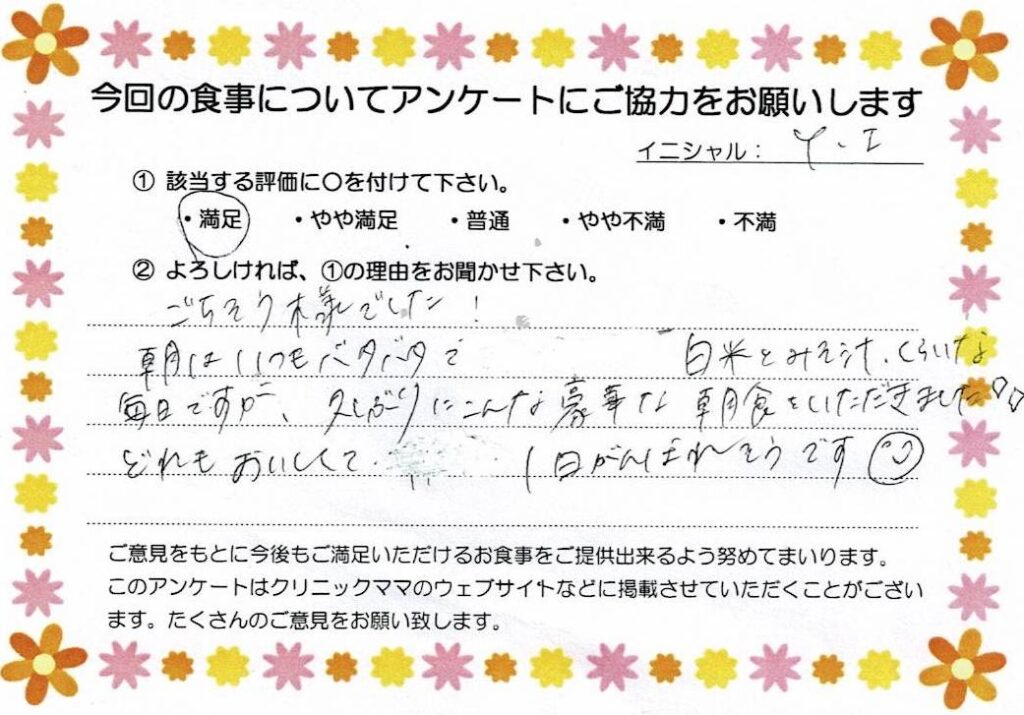 今回の食事についてアンケートにご協力をお願いします
イニシャル： Y.I
① 該当する評価に〇を付けて下さい。
・満足 ・やや満足 ・普通 ・やや不満 ・不満
② よろしければ、①の理由をお聞かせ下さい。
ごちそう様でした！
朝はいつもバタバタで 白米とみそ汁、くらいな
毎日ですが、久しぶりにこんな豪華な朝食をいただきました♡♡
どれもおいしくて 1日がんばれそうです
ご意見をもとに今後もご満足いただけるお食事をご提供出来るよう努めてまいります。
このアンケートはクリニックママのウェブサイトなどに掲載させていただくことがござい
ます。たくさんのご意見をお願い致します。